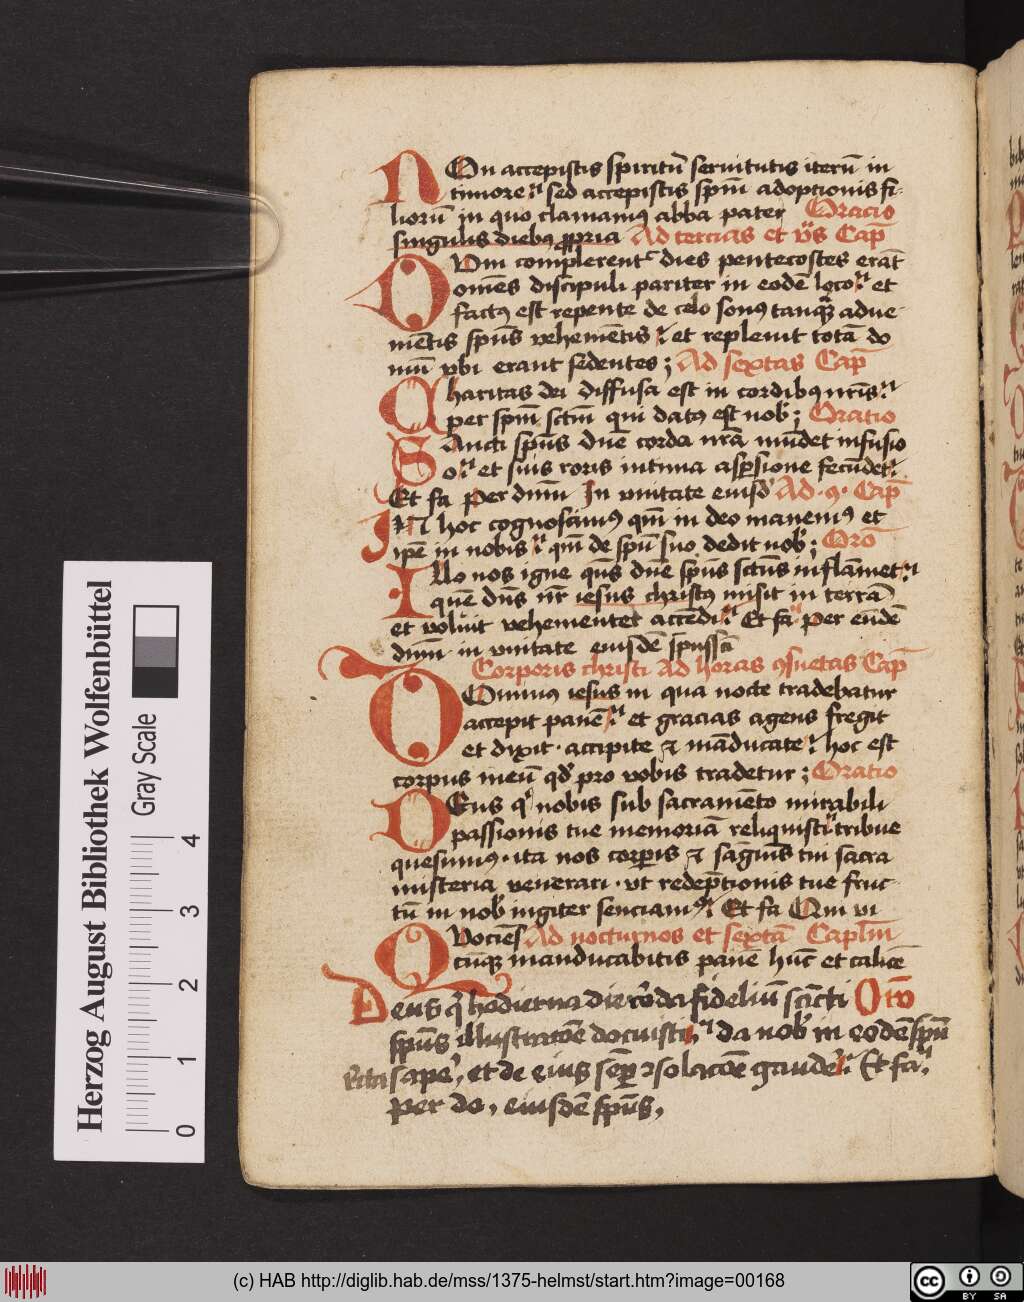 NOn accepistis spiritū seruitutis iterū in
timore sed accepistis spm̄ adoptionis fi-
liorū in quo clamamꝰ abba pater Oracio
singulis diebꝰ ꝓpria Ad tercias et v̄s Cap̄
DVm complerentᷣ dies pentecostes erāt
om̄es discipuli pariter in eodē loco et
factꝰ est repente de celo sonꝰ tanqꝫ adue-
niētis spūs vehemētis et repleuit totā do
mū vbi erant sedentes ; Ad sextas Cap̄
Charitas dei diffusa est in cordibꝰ nr̄is
per spm̄ sctm̄ qui datꝰ est nob̄ ; Oratio
SAncti spūs dn̄e corda nr̄a mūdet infusio
o et sui roris intima aspersione fecūdet
Et fa per dnm̄ In vnitate eiusd̄ Ad .9. Cap̄
IN hoc cognoscimꝰ qm̄ in deo manemꝰ et
ipē in nobis qm̄ de spū suo dedit nob̄ ; Orō
Illo nos igne qs̄ dn̄e spūs sctūs inflāmet
quē dn̄s nr̄ iesus christꝰ misit in terrā
et voluit vehementer accēdi Et fa per eūdē
dnm in vnitate eiusdē spūssc̄i
Corporis christi Ad horas ꝯsuetas Cap̄
DOminus iesus in qua nocte tradebatur
accepit panē et gracias agens fregit
et dixit . accipite et māducate hoc est
corpus meū qd̄ pro vobis tradetur ; Oratio
DEus qͥ nobis sub sacramēto mirabili
passionis tue memoriā reliquisti tribue
quesumꝰ . ita nos corporis et sāgīnis tui sacra
misteria venerari . vt redēptionis tue fruc-
tū in nob̄ iugiter senciamꝰ Et fa Qui vi
QVociēs Ad nocturnos et sextā Caplm̄
cūqꝫ manducabitis panē hūc et calicē
Deus qͥ hodierna die corda fideliū scti Orō
spūs illustratōe docuisti da nob̄ in eodē spū
recta sapē, et de eius sēp ꝯsolacōe gaudē Et fa,
per do, eiusdē spūs,
Herzog August Bibliothek Wolfenbüttel
Gray Scale
0 1 2 3 4
(c) HAB http://diglib.hab.de/mss/1375-helmst/start.htm?image=00168
cc BY SA